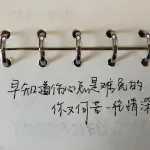 早知道伤心总是难免的
你又何苦一往情深